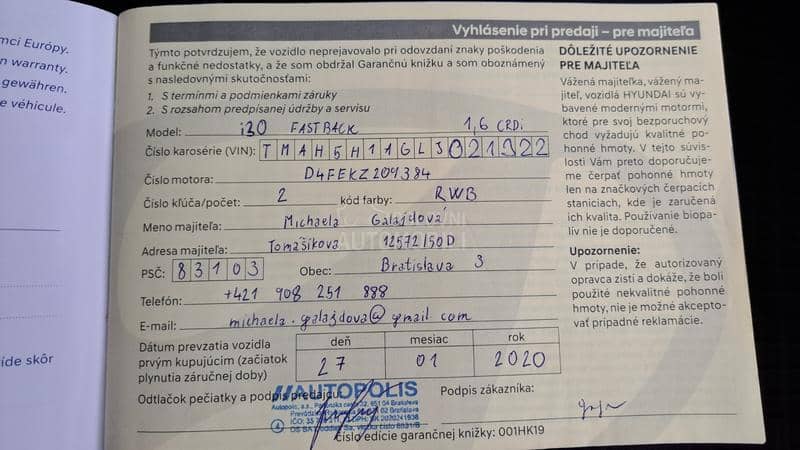 mci Európy.
n warranty.
gewähren.
e véhicule.
íde skôr
Vyhlásenie pri predaji – pre majiteľa
Týmto potvrdzujem, že vozidlo neprejavovalo pri odovzdaní znaky poškodenia
a funkčné nedostatky, a že som obdržal Garančnú knižku a som oboznámený
s nasledovnými skutočnosťami:
1. S termínmi a podmienkami záruky
2. S rozsahom predpísanej údržby a servisu
Model: i30 FASTBACK 1,6 CRDi
Číslo karosérie (VIN): TMAH5H11GLJ021322
Číslo motora: D4FEKZ209384
Číslo kľúča/počet: 2 kód farby: RWB
Meno majiteľa: Michaela Galajdová
Adresa majiteľa: Tomášikova 12572/50D
PSČ: 83103 Obec: Bratislava 3
Telefón: +421 908 251 888
E-mail: michaela.galajdova@gmail com
Dátum prevzatia vozidla
prvým kupujúcim (začiatok
plynutia záručnej doby)
deň mesiac rok
27 01 2020
Odtlačok pečiatky a podpis predajcu:
AUTOPOLIS
Podpis zákazníka:
číslo edície garančnej knižky: 001HK19
DÔLEŽITÉ UPOZORNENIE
PRE MAJITEĽA
Vážená majiteľka, vážený ma-
jiteľ, vozidlá HYUNDAI sú vy-
bavené modernými motormi,
ktoré pre svoj bezporuchový
chod vyžadujú kvalitné po-
honné hmoty. V tejto súvis-
losti Vám preto doporučuje-
me čerpať pohonné hmoty
len na značkových čerpacích
staniciach, kde je zaručená
ich kvalita. Používanie biopa-
lív nie je doporučené.
Upozornenie:
V prípade, že autorizovaný
opravca zistí a dokáže, že boli
použité nekvalitné pohonné
hmoty, nie je možné akcepto-
vať prípadné reklamácie.